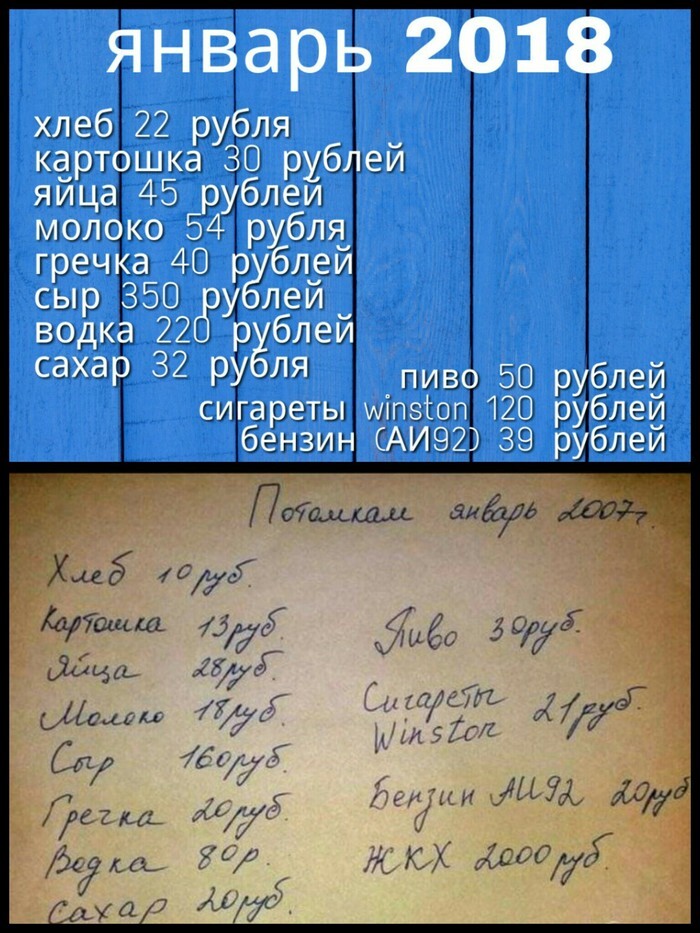 январь 2018
хлеб 22 рубля
картошка 30 рублей
яйца 45 рублей
молоко 54 рубля
гречка 40 рублей
сыр 350 рублей
водка 220 рублей
сахар 32 рубля
пиво 50 рублей
сигареты winston 120 рублей
бензин (АИ92) 39 рублей
Потомкам январь 2007г.
Хлеб 10 руб.
Картошка 13 руб.
Яйца 28 руб.
Молоко 18 руб.
Сыр 160 руб.
Гречка 20 руб.
Водка 80 р.
Сахар 20 руб.
Пиво 30 руб.
Сигареты
Winston 21 руб.
Бензин АИ92 20 руб
ЖКХ 2000 руб.